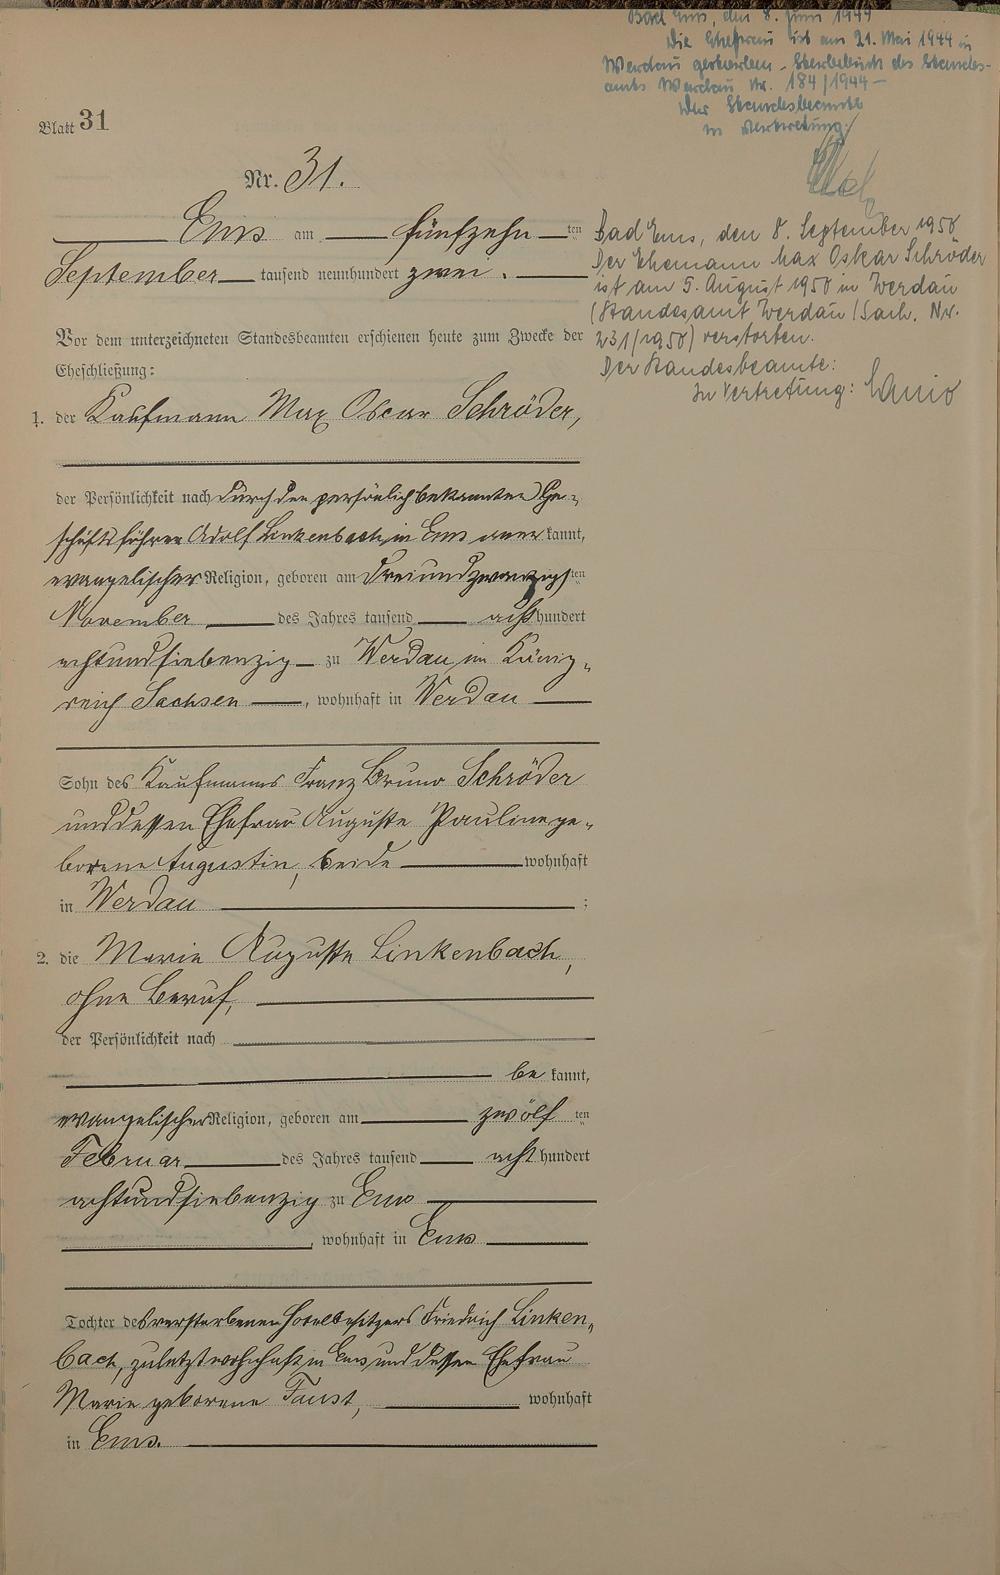 Bad Ems, den 8. Juni 1944
Die Ehefrau ist am 21. Mai 1944 in
Werdau gestorben - Sterbebuch des Standes-
amts Werdau Nr. 184/1944 -
Der Standesbeamte
in Vertretung:
Blatt 31
Nr. 31.
Ems am fünfzehn ten
September tausend neunhundert zwei.
Bad Ems, den 8. September 1950
Der Ehemann Max Oskar Schröder
ist am 5. August 1950 in Werdau
(Standesamt Werdau / Sach. Nr.
231/1950) verstorben.
Der Standesbeamte:
In Vertretung:
Vor dem unterzeichneten Standesbeamten erschienen heute zum Zwecke der
Eheschließung:
1. der Kaufmann Max Oscar Schröder,
der Persönlichkeit nach durch den persönlich bekannten Ge-
schäftsführer Adolf Linkenbach in Ems anerkannt,
evangelischer Religion, geboren am dreiundzwanzigsten
November des Jahres tausend acht hundert
achtundsiebenzig zu Werdau im König-
reich Sachsen, wohnhaft in Werdau
Sohn des Kaufmanns Franz Bruno Schröder
und dessen Ehefrau Auguste Pauline ge-
borene Augustin, beide wohnhaft
in Werdau ;
2. die Marie Auguste Linkenbach,
ohne Beruf,
der Persönlichkeit nach
be kannt,
evangelischer Religion, geboren am zwölf ten
Februar des Jahres tausend acht hundert
achtundsiebenzig zu Ems
, wohnhaft in Ems
Tochter des verstorbenen Hotelbesitzers Friedrich Linken-
bach, zuletzt wohnhaft in Ems und dessen Ehefrau
Marie geborene Faust, wohnhaft
in Ems.